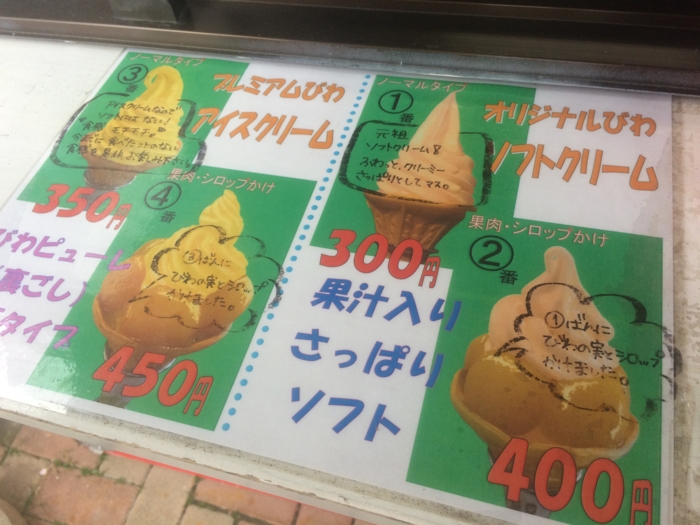 ノーマルタイプ
③
番
プレミアムびわ
アイスクリーム
アイスクリームなので
ソフトにはない!
モチモチ
今までに食べたことのない
食感と風味お楽しみ下さい
350円
果肉・シロップかけ
④
番
③ばんに
びわの実とシロップ
かけました。
450円
びわピューレ
(裏ごし)
タイプ
ノーマルタイプ
①
番
オリジナルびわ
ソフトクリーム
元祖
ソフトクリーム
ふわっと、クリーミー
さっぱりとしてマス。
300円
果汁入り
さっぱり
ソフト
果肉・シロップかけ
②
番
①ばんに
びわの実とシロップ
かけました。
400円